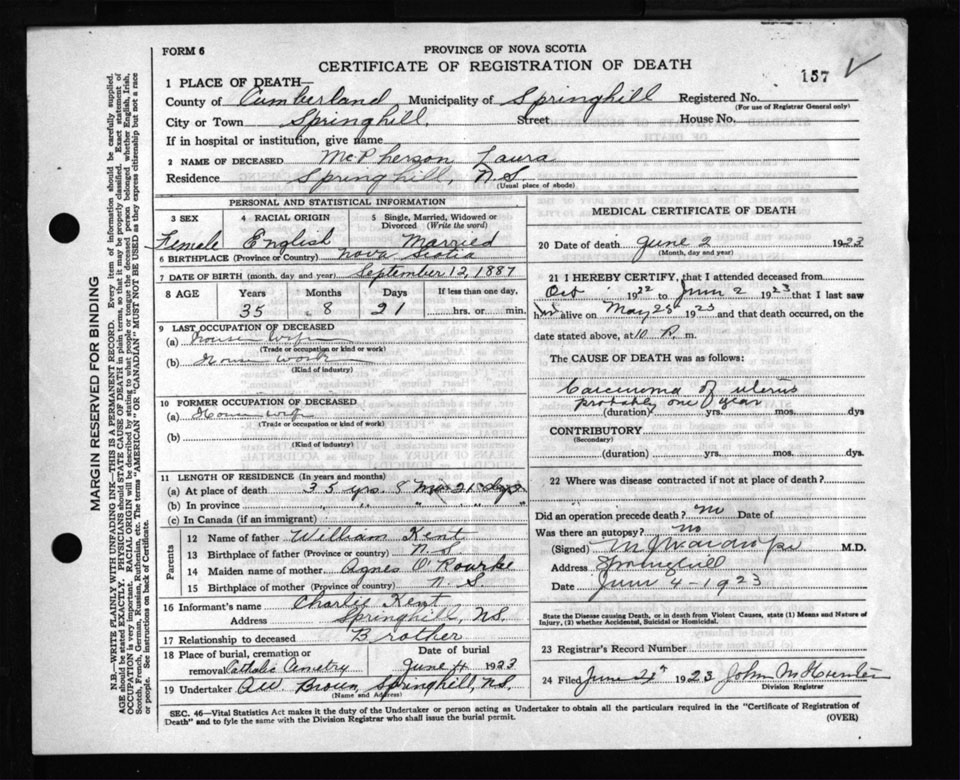 FORM 6
PROVINCE OF NOVA SCOTIA
CERTIFICATE OF REGISTRATION OF DEATH
157
1 PLACE OF DEATH—
County of Cumberland Municipality of Springhill Registered No.
(For use of Registrar General only)
City or Town Springhill, Street House No.
If in hospital or institution, give name
2 NAME OF DECEASED McPherson Laura
Residence Springhill, N.S.
(Usual place of abode)
PERSONAL AND STATISTICAL INFORMATION
3 SEX 4 RACIAL ORIGIN 5 Single, Married, Widowed or Divorced (Write the word)
Female English Married
6 BIRTHPLACE (Province or Country) Nova Scotia
7 DATE OF BIRTH (month, day and year) September 12, 1887
8 AGE Years Months Days If less than one day,
35 8 21 hrs. or min.
9 LAST OCCUPATION OF DECEASED
(a) House Wife
(Trade or occupation or kind or work)
(b) House work
(Kind of industry)
10 FORMER OCCUPATION OF DECEASED
(a) House wife
(Trade or occupation or kind of work)
(b)
(Kind of industry)
11 LENGTH OF RESIDENCE (In years and months)
(a) At place of death 35 yrs. 8 Mos 21 days
(b) In province " " " " " "
(c) In Canada (if an immigrant)
Parents
12 Name of father William Kent
13 Birthplace of father (Province or country) N.S
14 Maiden name of mother Agnes O'Rourke
15 Birthplace of mother (Province or country) N.S
16 Informant's name Charlie Kent
Address Springhill, N.S.
17 Relationship to deceased Brother
18 Place of burial, cremation or removal Catholic Cemetry Date of burial June 4 1923
19 Undertaker AW Brown, Springhill, N.S.
(Name and Address)
MEDICAL CERTIFICATE OF DEATH
20 Date of death June 2 1923
(Month, day and year)
21 I HEREBY CERTIFY, that I attended deceased from
Oct 1922 to June 2 1923 that I last saw
her alive on May 28 1923 and that death occurred, on the
date stated above, at 10 P. m.
The CAUSE OF DEATH was as follows:
Carcinoma of uterus
probably one year
(duration) yrs. mos. dys
CONTRIBUTORY
(Secondary)
(duration) yrs. mos. dys.
22 Where was disease contracted if not at place of death?
Did an operation precede death? No Date of
Was there an autopsy? No
(Signed) M.D.
Address Springhill
Date June 4-1923
State the Disease causing Death, or in death from Violent Causes, state (1) Means and Nature of Injury, (2) whether Accidental, Suicidal or Homicidal.
23 Registrar's Record Number
24 Filed June 1923 John
Division Registrar
SEC. 46—Vital Statistics Act makes it the duty of the Undertaker or person acting as Undertaker to obtain all the particulars required in the "Certificate of Registration of
Death" and to fyle the same with the Division Registrar who shall issue the burial permit.
(OVER)
MARGIN RESERVED FOR BINDING
N.B.—WRITE PLAINLY WITH UNFADING INK—THIS IS A PERMANENT RECORD. Every item of information should be carefully supplied.
AGE should be stated EXACTLY. PHYSICIANS should STATE CAUSE OF DEATH in plain terms, so that it may be properly classified. Exact statement of
OCCUPATION is very important. RACIAL ORIGIN will be described by stating to what people or tongue the deceased person belonged whether English, Irish,
Scotch, French, German, Russian, Ruthenian, etc. The terms "AMERICAN" OR "CANADIAN" MUST NOT BE USED as they express citizenship but not a race
or people. See instructions on back of Certificate.